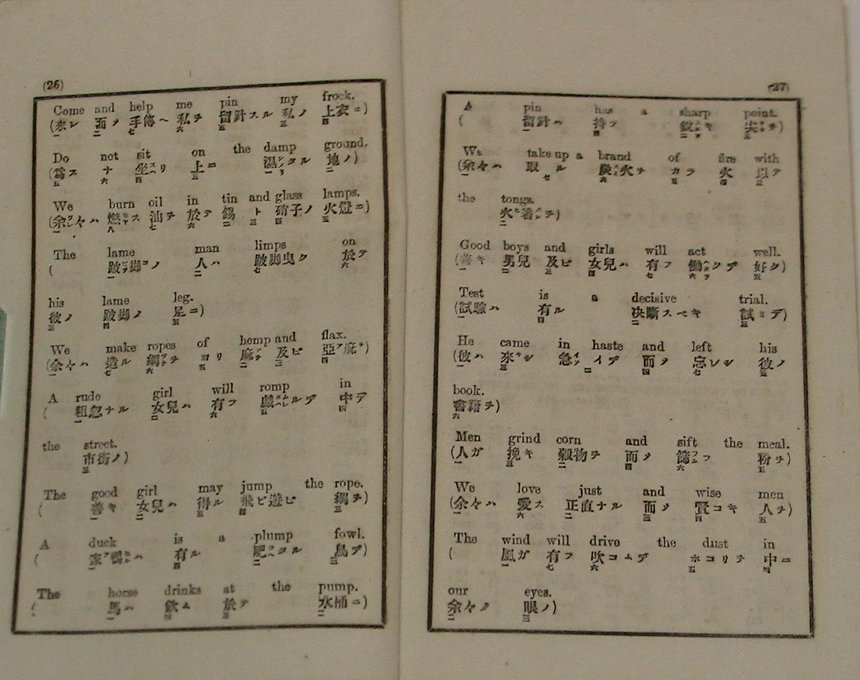 (26)
Come and help me pin my frock.
(來レ 而メ 手傳へ 私ヲ 留針スル 私ノ 上衣ニ)
Do not sit on the damp ground.
ス ナ 坐リ 上ニ 濕タル 地ノ)
We burn oil in tin and glass lamps.
(余々ハ 燃ス 油ヲ 於テ 錫 ト 硝子ノ 火燈ニ)
The lame man limps on
( 跛脚ノ 人ハ 跛脚曳ク 於テ
his lame leg.
彼ノ 跛脚ノ 足ニ)
We make ropes of hemp and flax.
(余々ハ 造ル 綱ヲ ヨリ 麻 及ヒ 亞麻)
A rude girl will romp in
( 粗忽ナル 女兒ハ 有フ 戯ルデ 中デ
the street.
市街ノ)
The good girl may jump the rope.
( 善キ 女兒ハ 得ル 飛ビ遊ビ 綱ヲ)
A duck is a plump fowl.
( 家鴨ハ 有ル 肥タル 鳥デ)
The horse drinks at the pump.
( 馬ハ 飲ム 於テ 水桶ニ)
(27)
A pin has a sharp point.
( 留針ハ 持ツ 鋭キ 尖ヲ)
We take up a brand of fire with
(余々ハ 取ル 火ヲ カラ 火 以テ
the tongs.
火箸ヲ)
Good boys and girls will act well.
(善キ 男兒 及ビ 女兒ハ 有フ 働クデ 好ク)
Test is a decisive trial.
(試驗ハ 有ル 決斷スベキ 試デ)
He came in haste and left his
(彼ハ 來シ 急イデ 而メ 忘レシ 彼ノ
book.
書籍ヲ)
Men grind corn and sift the meal.
(人ガ 挽キ 穀物ヲ 而メ 篩フ 粉ヲ)
We love just and wise men
(余々ハ 愛ス 正直ナル 而メ 賢コキ 人ヲ)
The wind will drive the dust in
( 風ガ 有フ 吹コムデ ホコリヲ 中ニ
our eyes.
余々ノ 眼ノ)